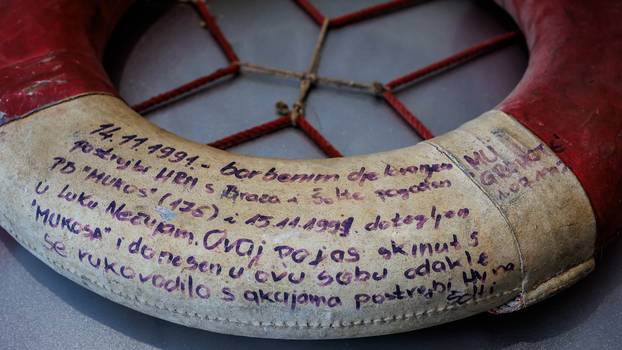 14.11.1991. - borbenim djelovanjem
postrojbi HRM s Brača i Šolte pogođen
PB "MUKOS" (176) i 15.11.1991. dotegljen
u luku Nečujam. Ovaj pojas skinut s
"MUKOSA" i donesen u ovu sobu odakle
se rukovodilo s akcijama postrojbi HM na
Šolti